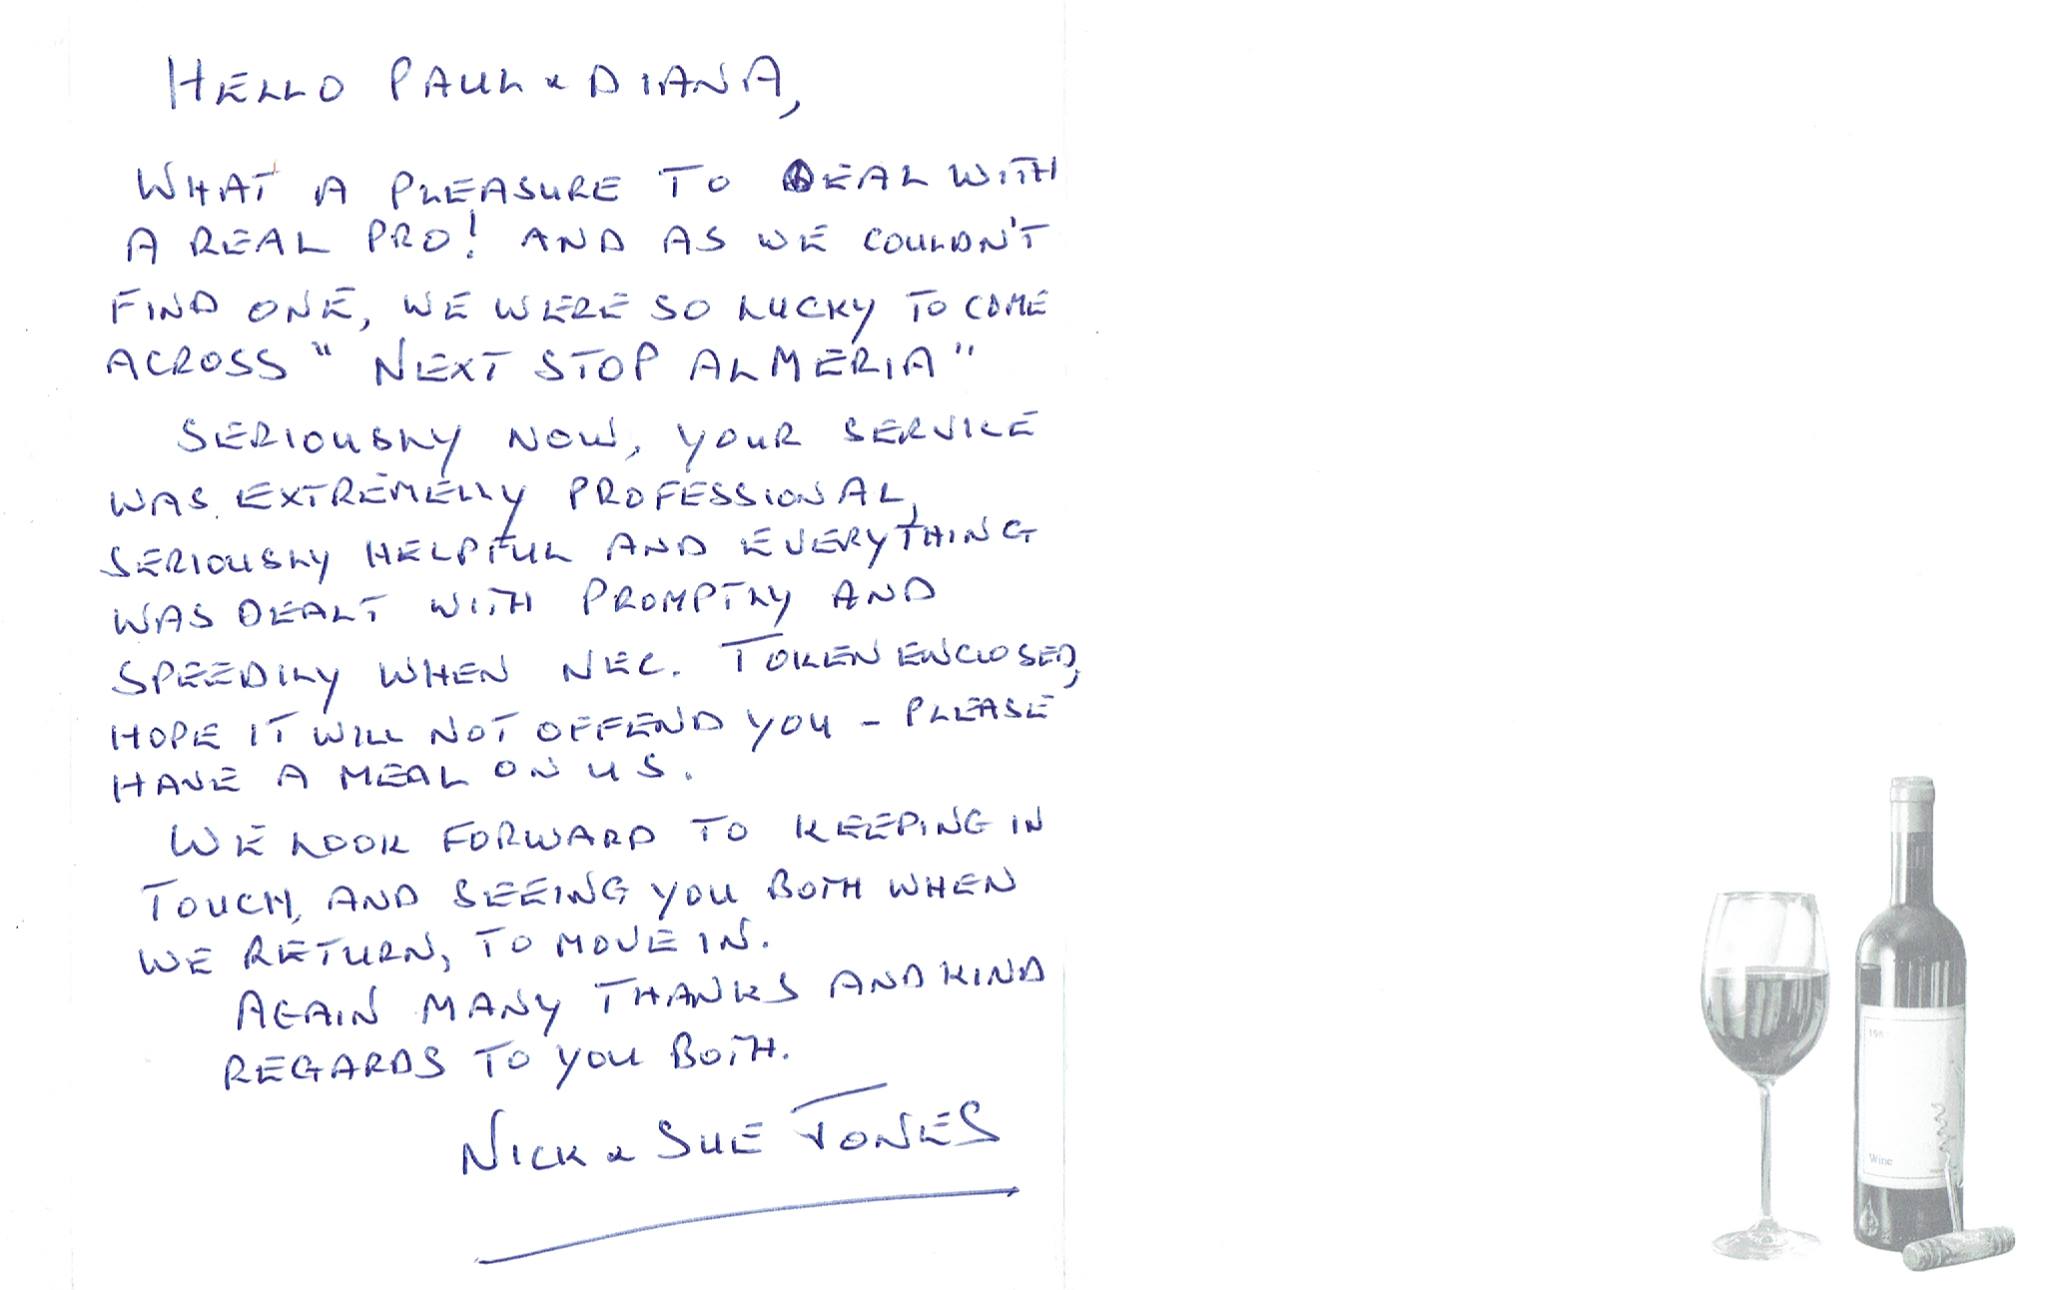 HELLO PAUL & DIANA,
WHAT A PLEASURE TO DEAL WITH
A REAL PRO! AND AS WE COULDN'T
FIND ONE, WE WERE SO LUCKY TO COME
ACROSS "NEXT STOP ALMERIA"
SERIOUSLY NOW, YOUR SERVICE
WAS EXTREMELLY PROFESSIONAL,
SERIOUSLY HELPFUL AND EVERYTHING
WAS DEALT WITH PROMPTLY AND
SPEEDILY WHEN NEC. TOKEN ENCLOSED,
HOPE IT WILL NOT OFFEND YOU - PLEASE
HAVE A MEAL ON US.
WE LOOK FORWARD TO KEEPING IN
TOUCH, AND SEEING YOU BOTH WHEN
WE RETURN, TO MOVE IN.
AGAIN MANY THANKS AND KIND
REGARDS TO YOU BOTH.
NICK & SUE JONES
Wine